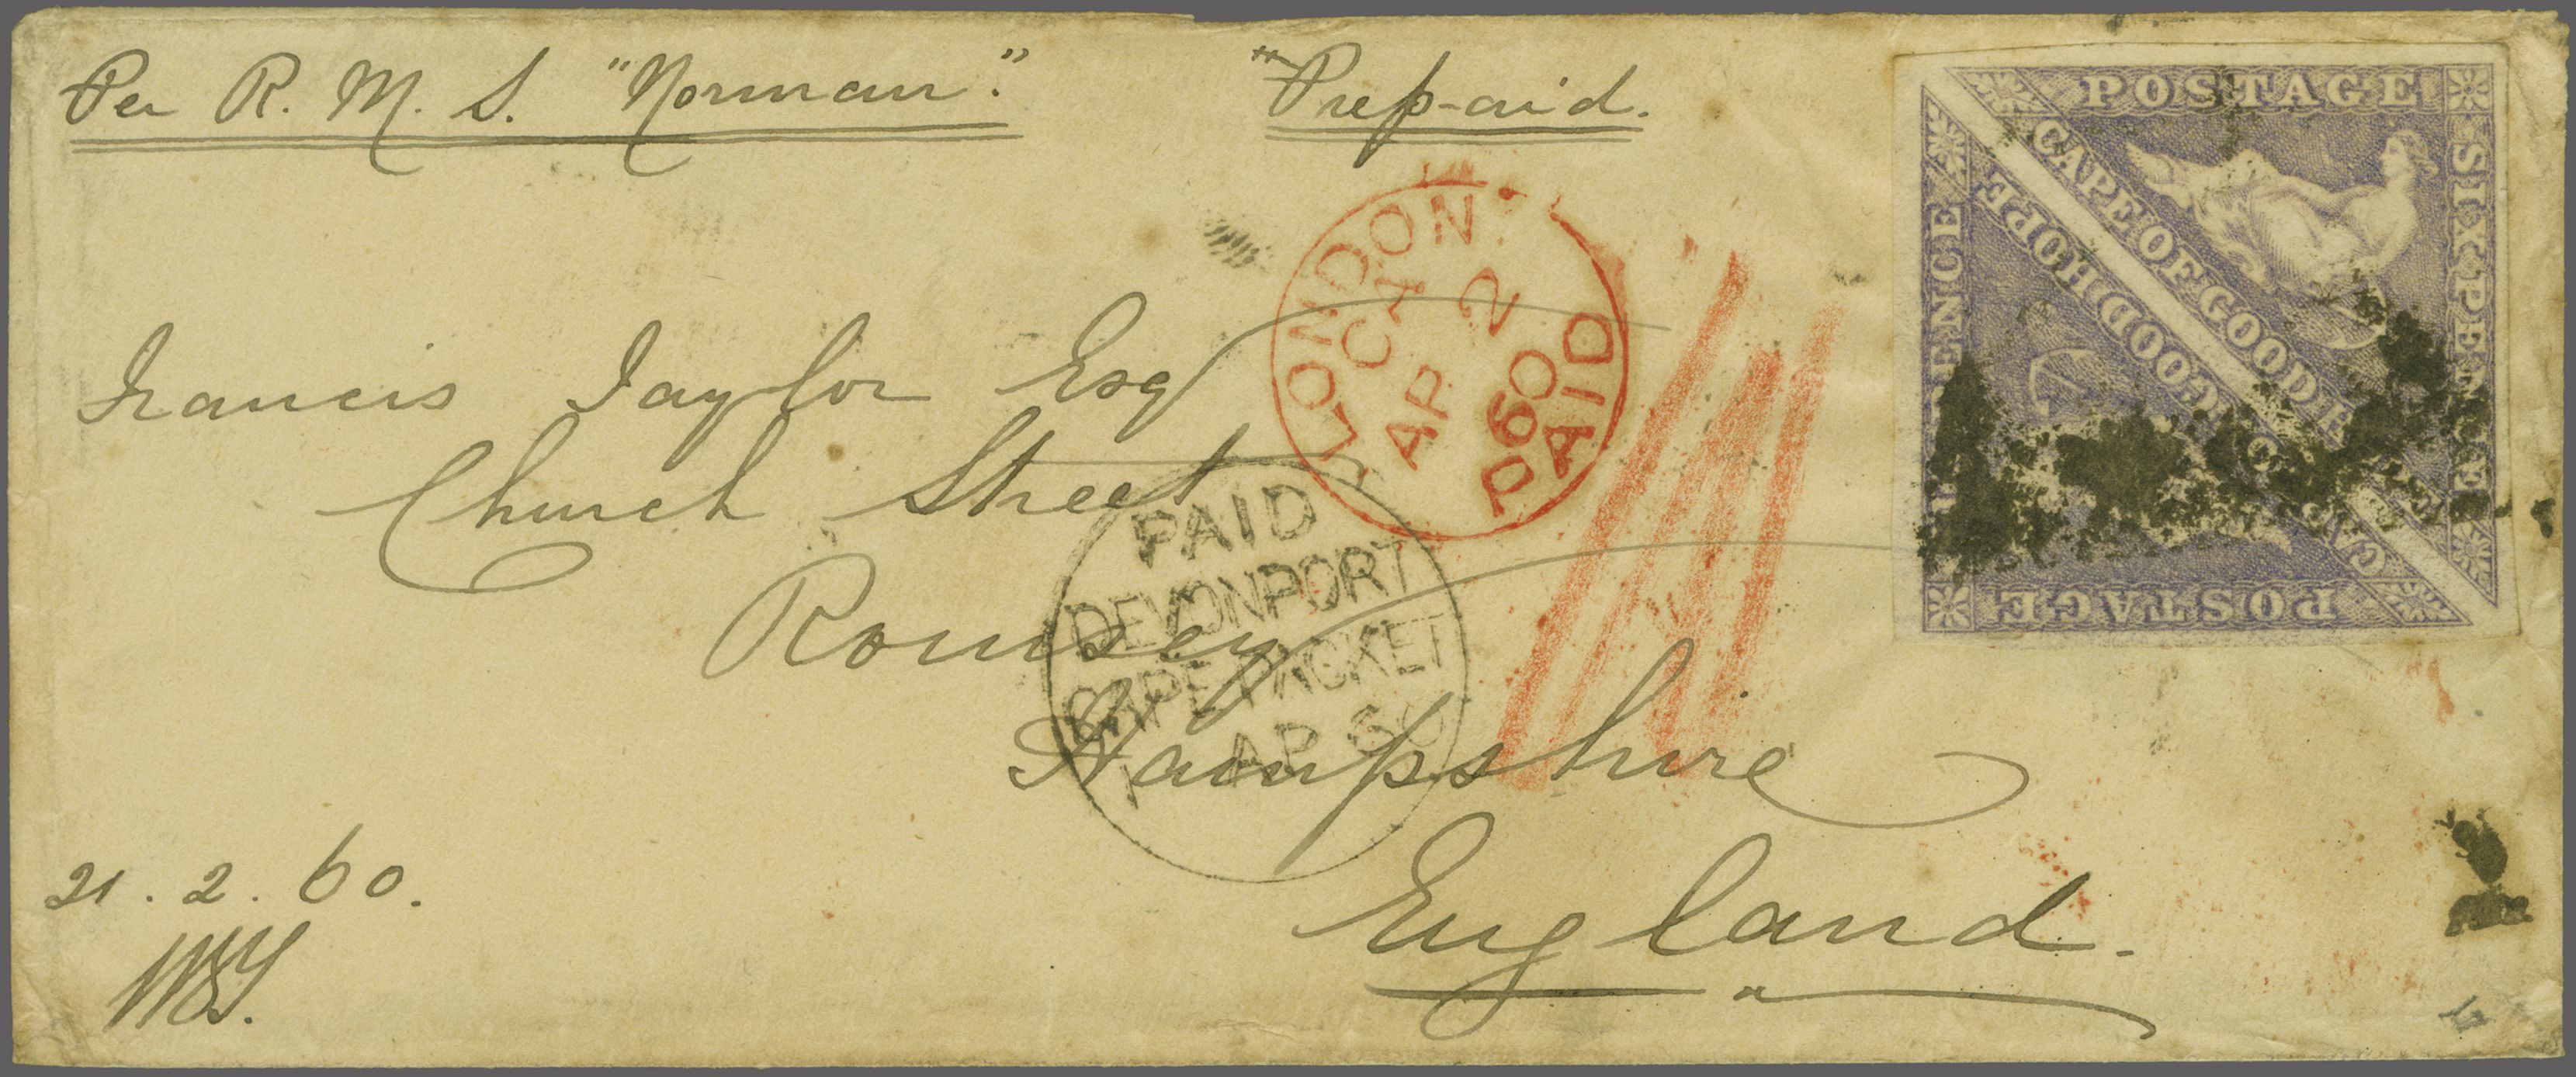 Per R. M. S. "Norman".
"Prep-aid.
Francis Taylor Esq
Church Street
Romsey
Hampshire
England.
21. 2. 60.
LONDON
CA
AP 2
60
PAID
PAID
DEVONPORT
CAPE PACKET
1 AP 60
POSTAGE
SIXPENCE
CAPE OF GOOD HOPE
CAPE OF GOOD HOPE
POSTAGE